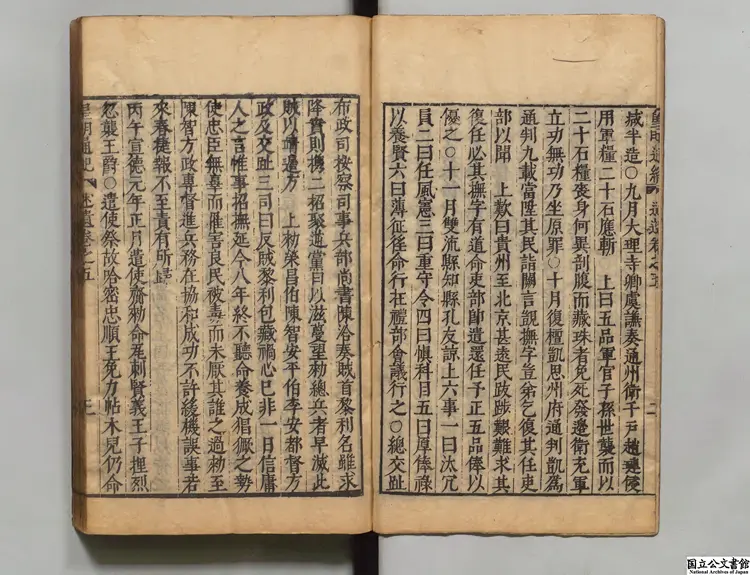 皇明通紀 述遺卷之五 二
減半造○九月大理寺卿虞謙奏通州衛千戶趙璉侵
用軍糧二十石應斬 上曰五品軍官子孫世襲而以
二十石糧喪身何異剖腹而藏珠者免死發邊衛充軍
立功無功乃坐原罪○十月復檀凱思州府通判凱爲
通判九載當陞其民詣闕言凱撫字豈弟乞復其任吏
部以聞 上歎曰貴州至北京甚遠民跋涉艱難求其
復任必其撫字有道命吏部卽遣還任予正五品俸以
優之○十一月雙流縣知縣孔友諒上六事一曰汰冗
員二曰任風憲三曰重守令四曰慎科目五曰厚俸祿
以養賢六曰薄征徭命行在禮部會議行之○總交趾
布政司按察司事兵部尚書陳洽奏賊首黎利名雖求
降實則機二招聚逋黨日以滋蔓望勅總兵者早滅此
賊以靖邊方 上勅榮昌伯陳智安平伯李安都督方
政及交趾三司曰反賊黎利包藏禍心已非一日信庸
人之言惟事招撫延今八年終不聽命養成猖獗之勢
使忠臣無辜而罹害良民被毒而未厭其誰之過勅至
陳智方政專督進兵務在協和成功不許緩機誤事若
來春捷報不至責有所歸
丙午宣德元年正月遣使齎勅命韃靼賢義王子捏烈
忽襲王爵○遣使祭故哈密忠順王免力帖木兒仍命
皇明通紀 述遺卷之五 三
国立公文書館
National Archives of Japan